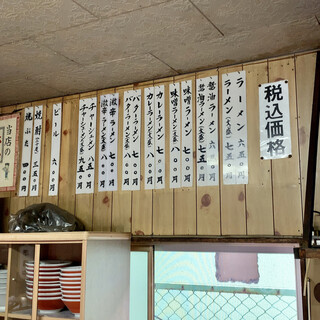 税込価格
ラーメン 六五〇円
ラーメン(大盛) 七五〇円
醤油ラーメン 六五〇円
醤油ラーメン(大盛) 七五〇円
味噌ラーメン 七〇〇円
味噌ラーメン(大盛) 八〇〇円
カレーラーメン 七〇〇円
カレーラーメン(大盛) 八〇〇円
バターラーメン 七〇〇円
バターラーメン(大盛) 八〇〇円
激辛ラーメン 七〇〇円
激辛ラーメン(大盛) 八〇〇円
チャーシューメン 八五〇円
チャーシューメン(大盛) 九五〇円
ビール 六〇〇円
焼酎 三五〇円
焼ぶた 四〇〇円
当店の